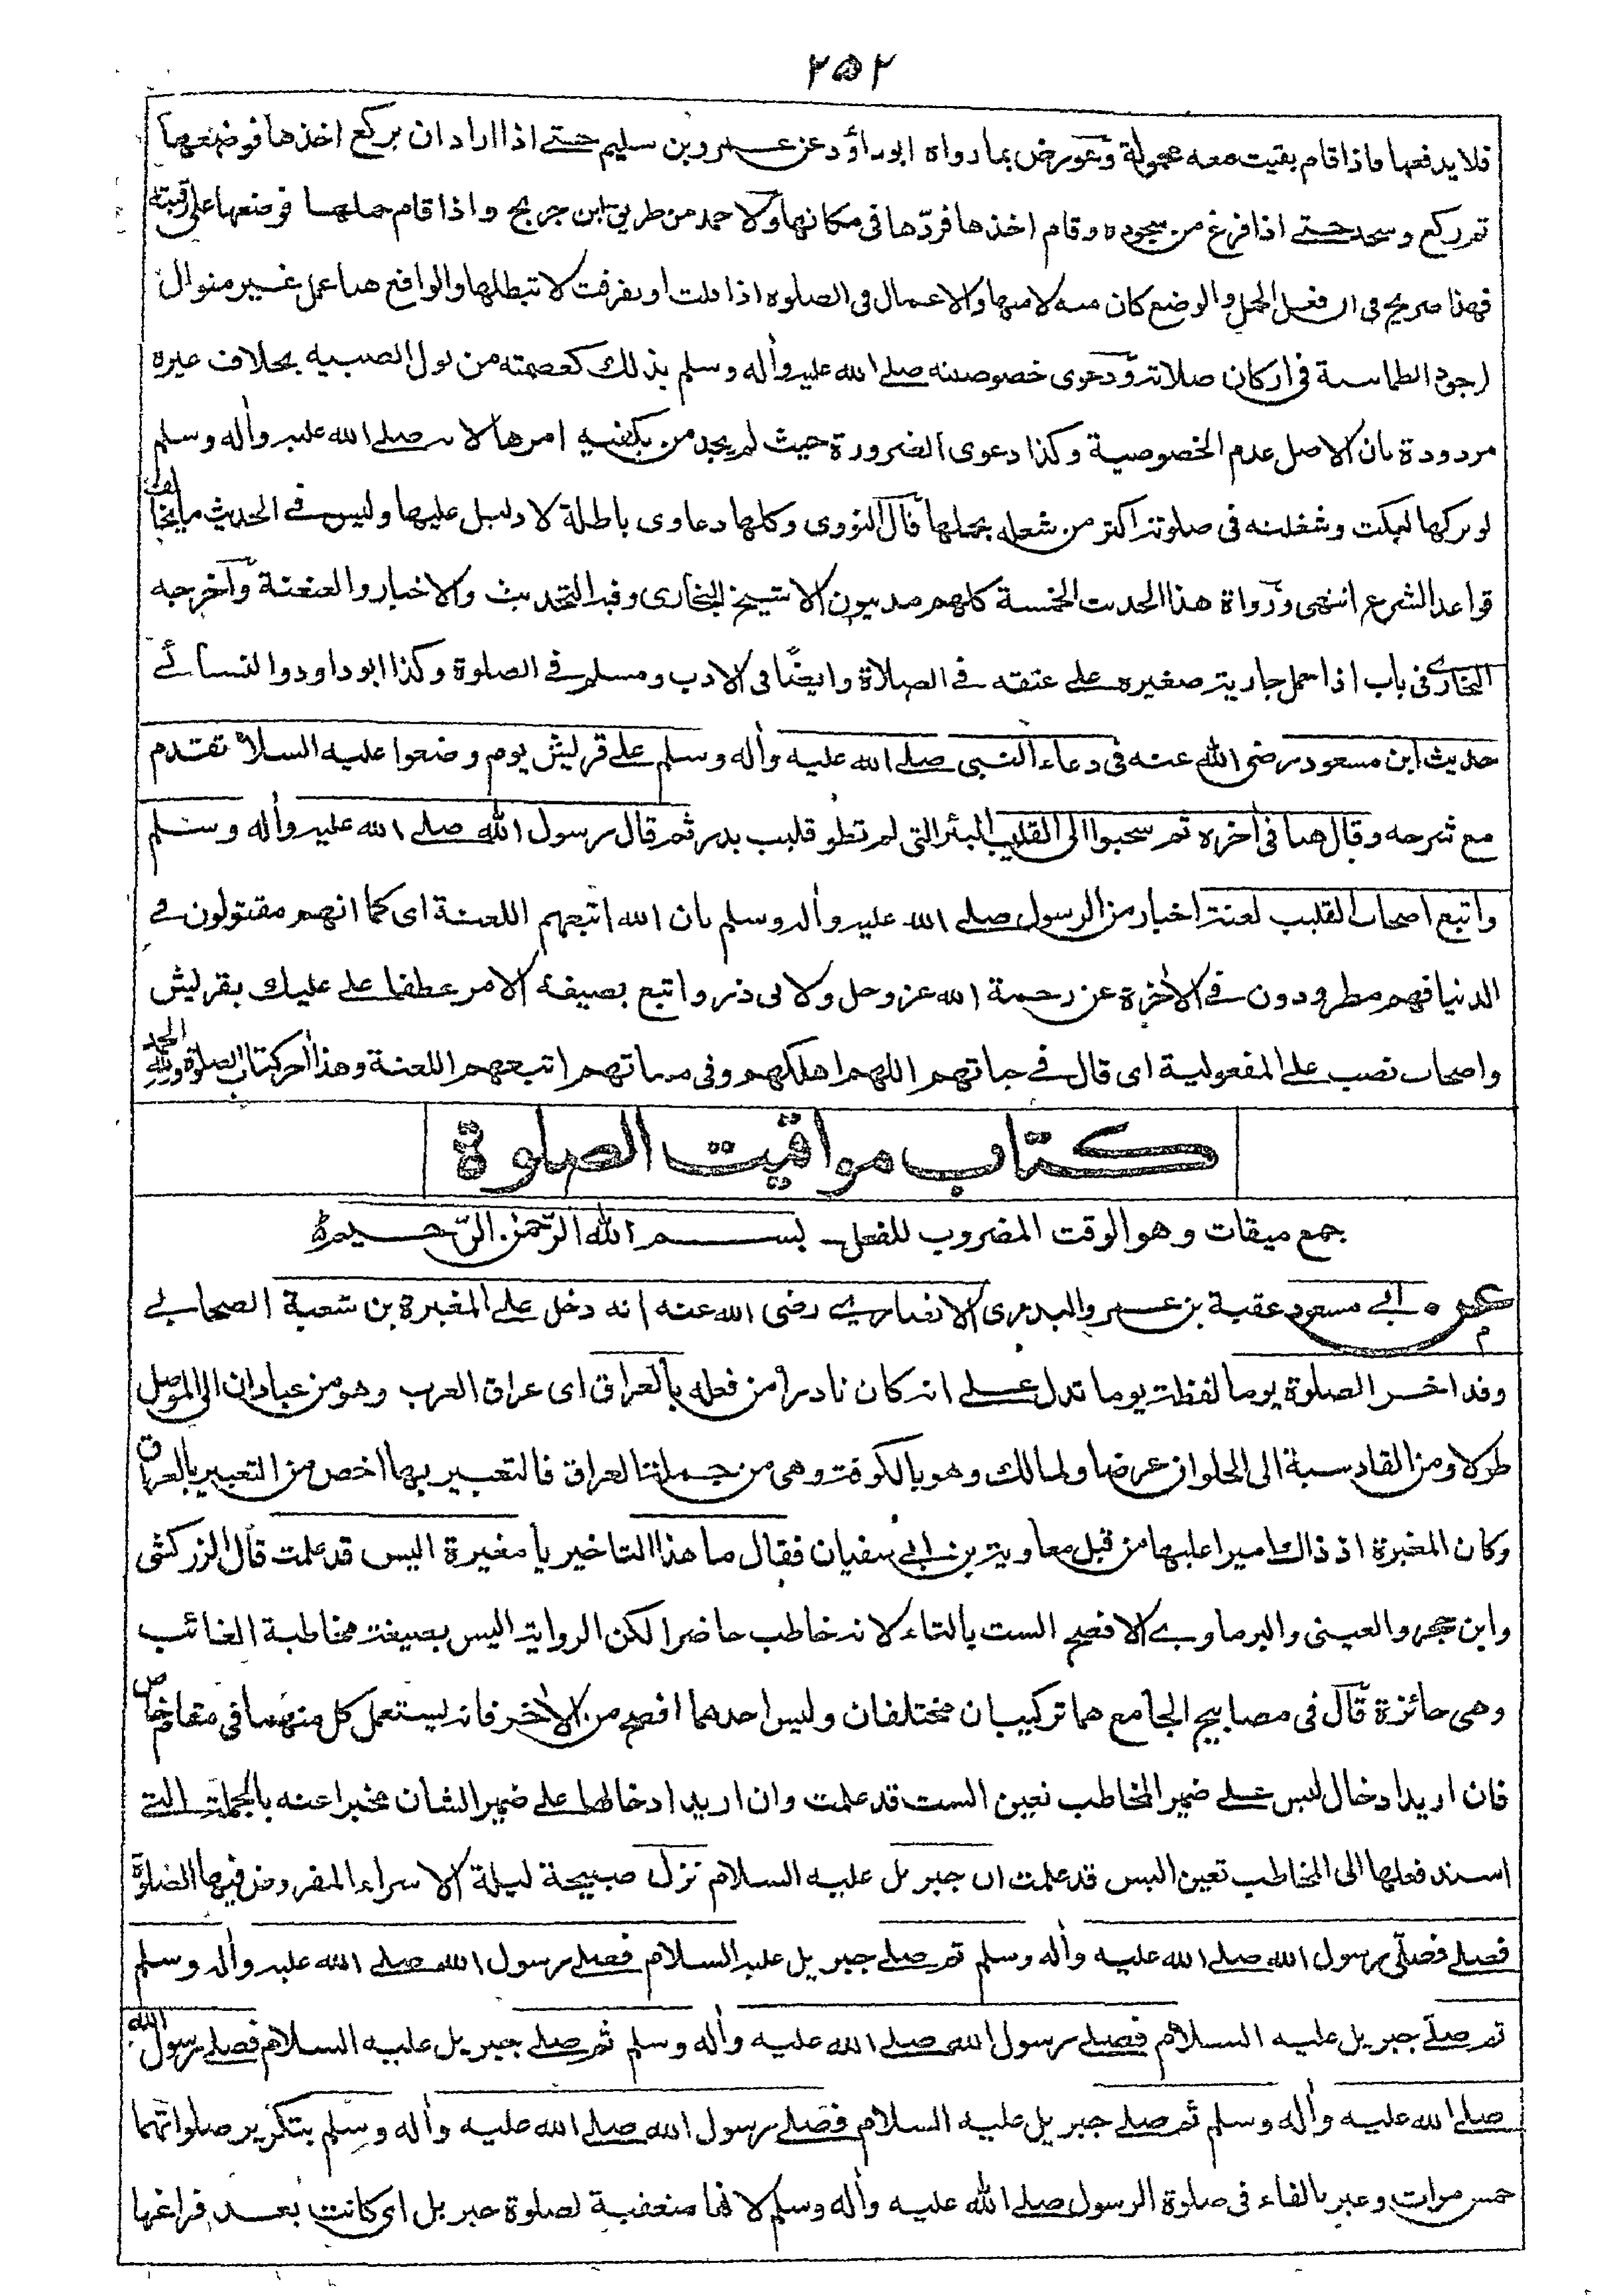 ٢٥٢
فلا يدفعها فاذا قام بقيت معه محمولة وعورض بما رواه ابوداؤد عن عمرو بن سليم حتے اذا اراد ان يركع اخذها فوضعها
ثم ركع وسجد حتے اذا فرغ من سجوده وقام اخذها فردّها فى مكانها ولاحمد من طريق ابن جريج واذا قام حملها فوضعها على رقبته
فهذا صريح فى ان فعل الحمل والوضع كان منه لا منها والاعمال فى الصلوة اذا قلت او تفرقت لا تبطلها والواقع هنا عمل غير متوال
لوجود الطمانينة فى اركان صلاته ودعوى خصوصيته صلے الله عليه وأله وسلم بذلك كعصمته من بول الصبية بخلاف غيره
مردودة بان الاصل عدم الخصوصية وكذا دعوى الضرورة حيث لم يجد من يكفيه امرها لانه صلے الله عليه وأله وسلم
لو تركها لبكت وشغلته فى صلوته اكثر من شغله بحملها قال النووى وكلها دعاوى باطلة لا دليل عليها وليس فے الحديث ما يخالف
قواعد الشرع انتهى ورواة هذا الحديث الخمسة كلهم مدنيون الا شيخ البخارى وفيه التحديث والاخبار والعنعنة وأخرجه
البخارے فى باب اذا حمل جارية صغيره علے عنقه فے الصلاة وايضًا فى الادب ومسلم فے الصلوة وكذا ابوداود والنسائے
حديث ابن مسعود رضى الله عنه فى دعاء النبى صلے الله عليه وأله وسلم علے قريش يوم وضعوا عليه السلاء تقدم
مع شرحه وقال هنا فى أخره ثم سحبوا الى القليب البئر التى لم تطو قليب بدر ثم قال رسول الله صلے الله عليه وأله وسلم
واتبع اصحاب القليب لعنة اخبار من الرسول صلے الله عليه وأله وسلم بان الله اتبعهم اللعنة اى كما انهم مقتولون فے
الدنيا فهم مطرودون فے الأخرة عن رحمة الله عز وجل ولابى ذر واتبع بصيغة الامر عطفا على عليك بقريش
واصحاب نصب على المفعولية اى قال فے حياتهم اللهم اهلكهم وفى مماتهم اتبعهم اللعنة وهذا أخر كتاب الصلوة ولله الحمد
كتاب مواقيت الصلوة
جمع ميقات وهو الوقت المضروب للفعل بسم الله الرّحمٰن الرّحيم
عن ابے مسعود عقبة بن عمرو البدرى الانصارے رضى الله عنه انه دخل على المغيرة بن شعبة الصحابے
وقد اخر الصلوة يوما لفظة يوما تدل علے انه كان نادرا من فعله بالعراق اى عراق العرب وهو من عبادان الى الموصل
طولا ومن القادسية الى الحلوان عرضا ولمالك وهو بالكوفة وهى من جملة العراق فالتعبير بها اخص من التعبير بالعراق
وكان المغيرة اذ ذاك اميرا عليها من قبل معاوية بن ابے سفيان فقال ما هذا التاخير يا مغيرة اليس قد علمت قال الزركشى
وابن حجر والعينى والبرماوے الافصح الست بالتاء لانه خاطب حاضرا لكن الرواية اليس بصيغة مخاطبة الغائب
وهى جائزة قال فى مصابيح الجامع هما تركيبان مختلفان وليس احدهما افصح من الأخر فانه يستعمل كل منهما فى مقام خاص
فان اريد ادخال ليس علے ضمير المخاطب تعين الست قد علمت وان اريد ادخالها على ضمير الشان مخبرا عنه بالجملة التے
اسند فعلها الى المخاطب تعين اليس قد علمت ان جبريل عليه السلام نزل صبيحة ليلة الاسراء المفروض فيها الصلوة
فصلے فصلّى رسول الله صلے الله عليه وأله وسلم ثم صلے جبريل عليه السلام فصلے رسول الله صلے الله عليه وأله وسلم
ثم صلے جبريل عليه السلام فصلے رسول الله صلے الله عليه وأله وسلم ثم صلے جبريل عليه السلام فصلے رسول الله
صلے الله عليه وأله وسلم ثم صلے جبريل عليه السلام فصلے رسول الله صلے الله عليه وأله وسلم بتكرير صلواتهما
خمس مرات وعبر بالفاء فى صلوة الرسول صلے الله عليه وأله وسلم لانها متعقبة لصلوة جبريل اى كانت بعد فراغها